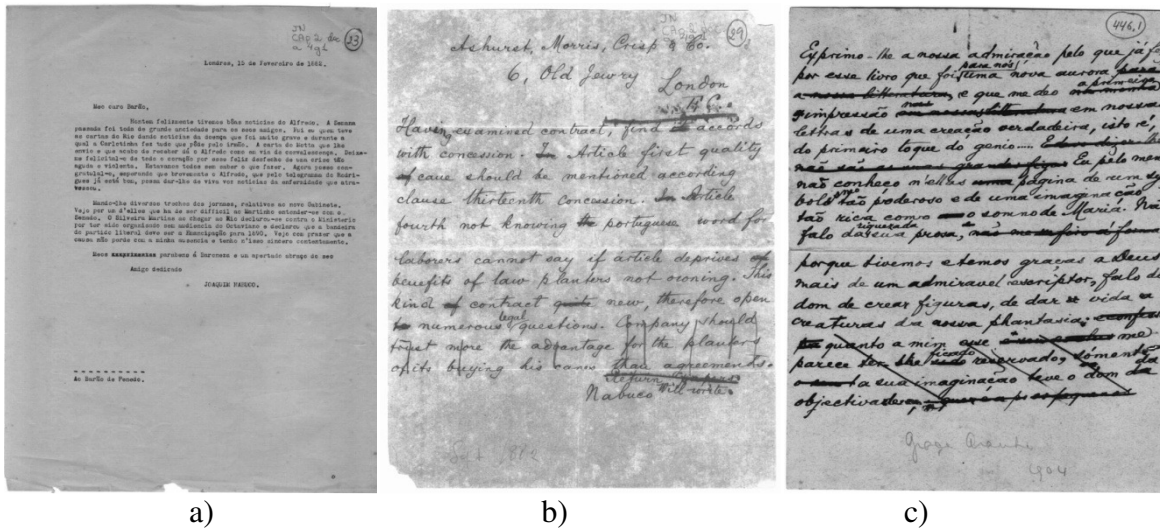 JN
CAP 2 doc
23
Londres, 15 de Fevereiro de 1882.
Meu caro Barão,
Hontem felizmente tivemos bôas noticias do Alfredo. A Semana
passada foi toda de grande anciedade para os seus amigos.
as cartas do Rio dando noticias da doença que foi muito grave e durante a
qual a Carlotinha fez tudo que póde pelo irmão. A carta do
envio e que acaba de receber dá o Alfredo como em via de convalescença.
felicital-o de todo o coração por esse feliz desfecho de uma crise tão
aguda e violenta. Estavamos todos sem saber o que fazer. Agora posso con-
gratulal-o, esperando que brevemente o Alfredo, que pelo telegramma do Rodri-
gues já está bem, possa dar-lhe de viva voz noticias da enfermidade que atra-
vessou.
Mando-lhe diversos trechos dos jornaes, relativos ao novo Gabinete.
Vejo por um d'elles que ha de ser difficil ao Martinho entender-se com o
Senado. O Silveira Martins ao chegar ao Rio declarou-se contra o Ministerio
por ter sido organizado sem audiencia do Octaviano e declara que a bandeira
do partido liberal deve ser a Emancipação para 1890. Vejo com prazer que a
causa não perde com a minha ausencia e tenho n'isso sincero contentamento.
Meus parabens á Baroneza e um apertado abraço do seu
Amigo dedicado
JOAQUIM NABUCO.
Ao Barão de Penedo.
a)
29
Ashurst, Morris, Crisp & Co.
6, Old Jewry
London
E.C.
Having examined contract, find accords
with concession In Article first quality
of cane should be mentioned according
clause thirteenth concession. In Article
fourth not knowing the portuguese word for
laborers cannot say if article deprives of
benefits of law planters not owning. This
kind of contract quite new, therefore open
to numerous legal questions. Company should
trust more the advantage for the planters
of its buying his canes than agreements.
Return Papers
Nabuco will write.
b)
446.1
Exprimo-lhe a nossa admiração pelo que já fez
por esse livro que foi para nós uma nova aurora para
a nossa litteratura, e que me deo a primeira
impressão em nossas
letras de uma creação verdadeira, isto é,
do primeiro toque do genio....
Eu pelo menos
não conheço n'ellas uma pagina de um sym-
bolismo tão poderoso e de uma imaginação
tão rica como o somno de Maria. Não
falo da sua prosa,
porque tivemos e temos graças a Deus
mais de um admiravel escriptor, falo do
dom de crear figuras, de dar vida a
creaturas da nossa phantasia;
quanto a mim que me
parece ter-lhe ficado reservado, somente
a sua imaginação teve o dom da
objectivad
Graça Aranha
1904
c)